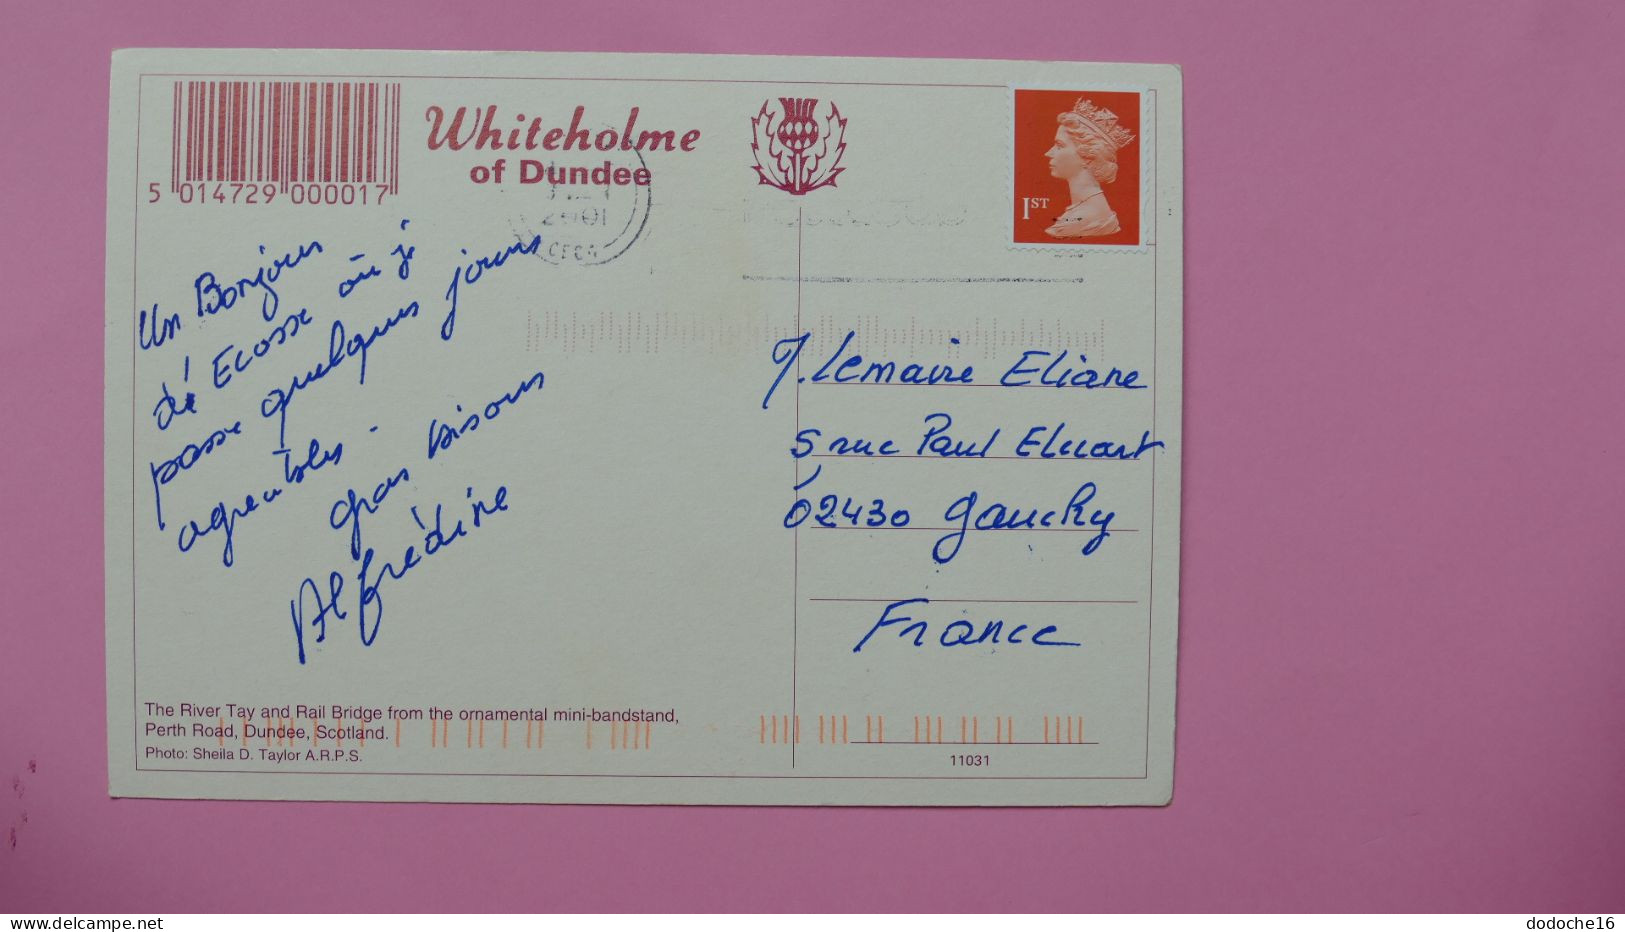 5 014729 000017
Whiteholme
of Dundee
1ST
Un Bonjour
d'Ecosse où je
passe quelques jours
agreables.
gros bisous
Alfrédine
Lemaire Eliane
5 rue Paul Eluart
02430 Gauchy
France
The River Tay and Rail Bridge from the ornamental mini-bandstand,
Perth Road, Dundee, Scotland.
Photo: Sheila D. Taylor A.R.P.S.
11031
delcampe.net
dodoche16